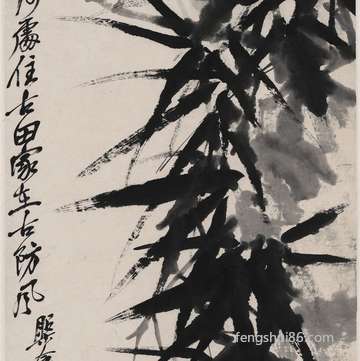 處住古田家在古防風
fengshui86.com